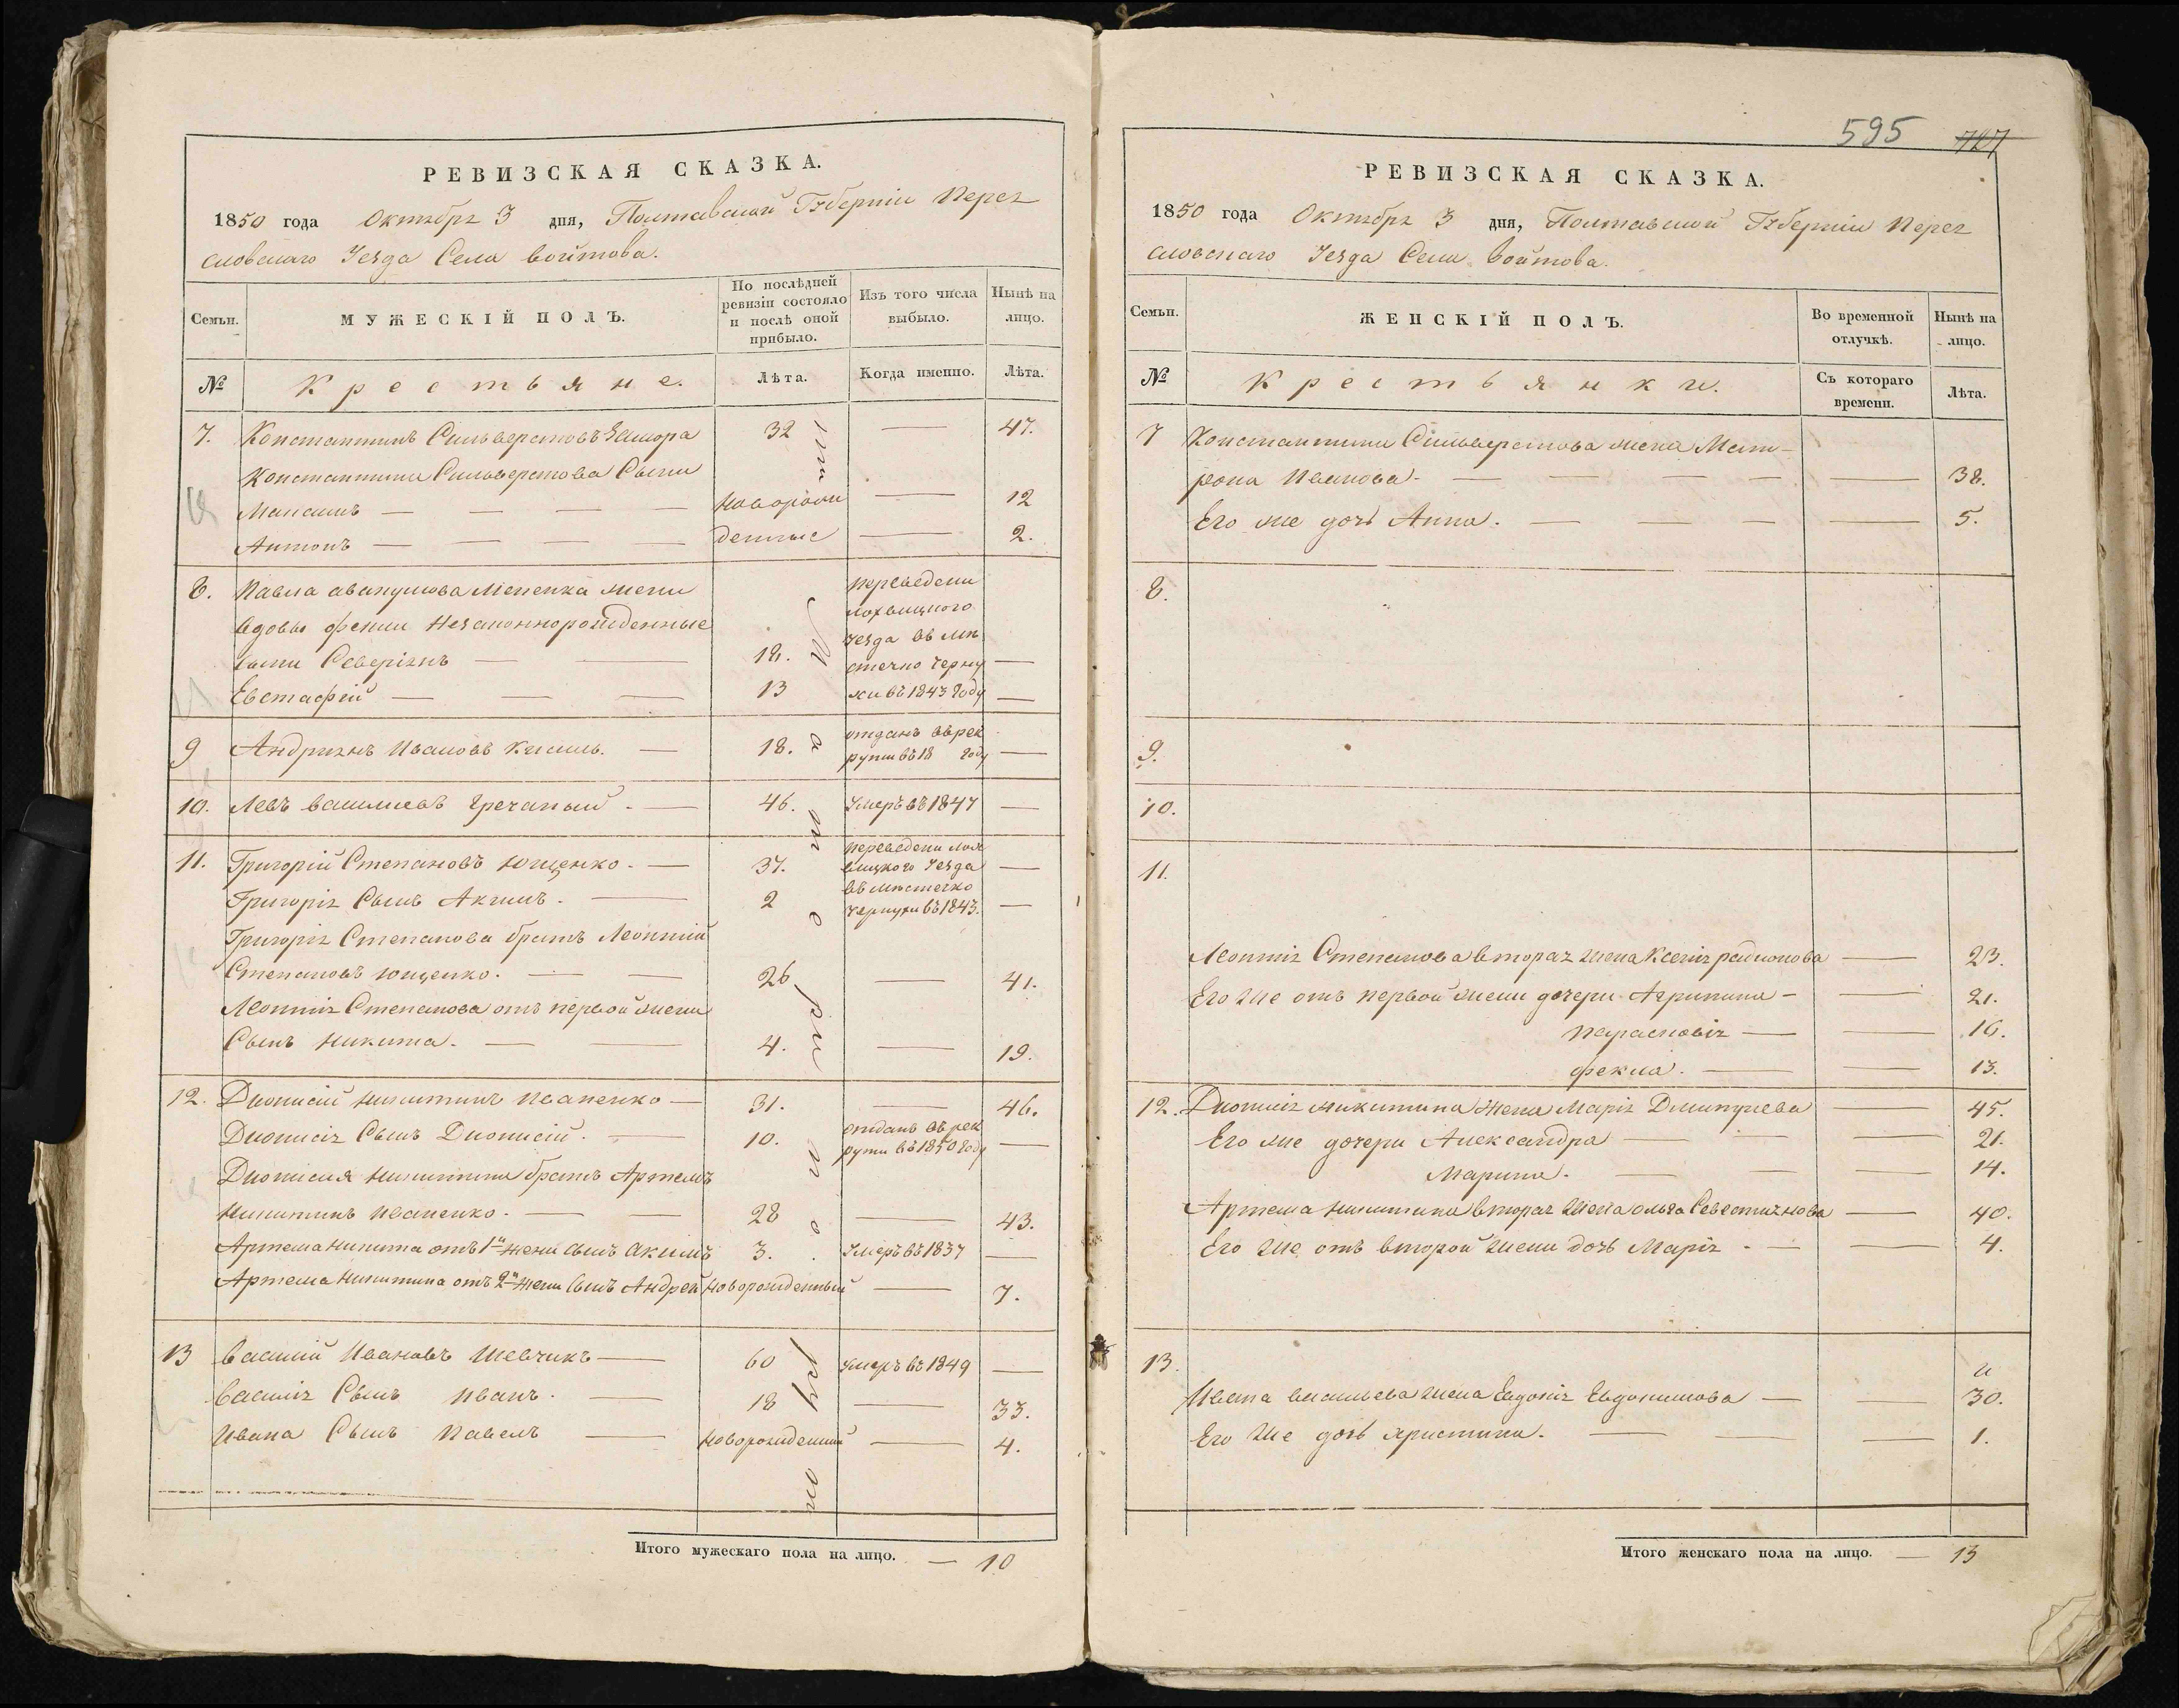 РЕВИЗСКАЯ СКАЗКА.
1850 года Октября 3 дня, Полтавской Губерніи Перея
словскаго Уезда Села Войтова.
Семьи.
МУЖЕСКІЙ ПОЛЪ.
По послѣдней
ревизіи состояло
и послѣ оной
прибыло.
Изъ того числа
выбыло.
Нынѣ на
лицо.
№
Крестьяне.
Лѣта.
Когда именно.
Лѣта.
7. Константинъ Сильверстовъ 32 — 47.
Константина Сильверстова Сыны
Максимъ — — — — новорож — 12
Антонъ — — — — денные — 2.
8. Павла Менепка жены переведены
вдовы незаконнорожденные лохвицкого
сыны Северіянъ — — 18. уезда въ мѣ
стечко Черну —
Евстафій — — — 13 хи въ 1843 году —
9 Андріянъ Ивановъ Кисиль. — 18. отданъ въ рек
руты въ 18 году —
10. Левъ Васильевъ Гречаный — 46. Умеръ въ 1847 —
11. Григорій Степановъ Ющенко. — 37. переведены лох
вицкого уезда —
въ мѣстечко
Григорія Сынъ Акимъ. — 2 Чернухи въ 1843. —
Григорія Степанова братъ Леонтій
Степановъ Ющенко. — — 26 — 41.
Леонтія Степанова отъ первой жены
Сынъ Никита. — — 4. — 19.
12. Дионисій Никитинъ Иваненко — 31. — 46.
Дионисія Сынъ Дионисій. — 10. отданъ въ рек
руты въ 1850 году —
Дионисія Никитина братъ Артемъ
Никитинъ Иваненко. — — 28 — 43.
Артема Никита отъ 1й жены сынъ Акимъ 3. Умеръ въ 1837 —
Артема Никитина отъ 2й жены Сынъ Андрей новорожденный — 7.
13 Василій Ивановъ Шевчикъ — 60 умеръ въ 1849 —
Василія Сынъ Иванъ. — 18 — 33.
Ивана Сынъ Павелъ — новорожденный — 4.
Итого мужескаго пола на лицо. — 10
595 727
РЕВИЗСКАЯ СКАЗКА.
1850 года Октября 3 дня, Полтавской Губерніи Перея
словскаго Уезда Села Войтова.
Семьи.
ЖЕНСКІЙ ПОЛЪ.
Во временной
отлучкѣ.
Нынѣ на
лицо.
№
Крестьянки.
Съ котораго
времени.
Лѣта.
7 Константина Сильверстова жена Мат-
рона Иванова. — — — — — 38.
Его же дочь Анна. — — — 5.
8.
9.
10.
11.
Леонтія Степанова вторая жена Ксенія Радионова — 23.
Его же отъ первой жены дочери Агрипина — — 21.
Парасковія — — 16.
Фекла. — — 13.
12. Дионисія Никитина жена Марія Дмитріева — 45.
Его же дочери Александра — — — 21.
Марина. — — — 14.
Артема Никитина вторая жена Ольга Севестіянова — 40.
Его же отъ второй жены дочь Марія — — 4.
13.
Ивана Васильева жена Евдокія Евдокимова — — 30.
Его же дочь Христина. — — — 1.
Итого женскаго пола на лицо. — 13